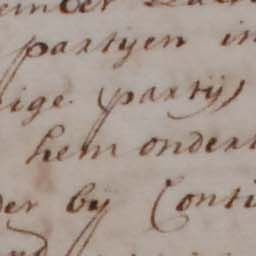 partijen in
eige partij,
hem ondert
der by Conti